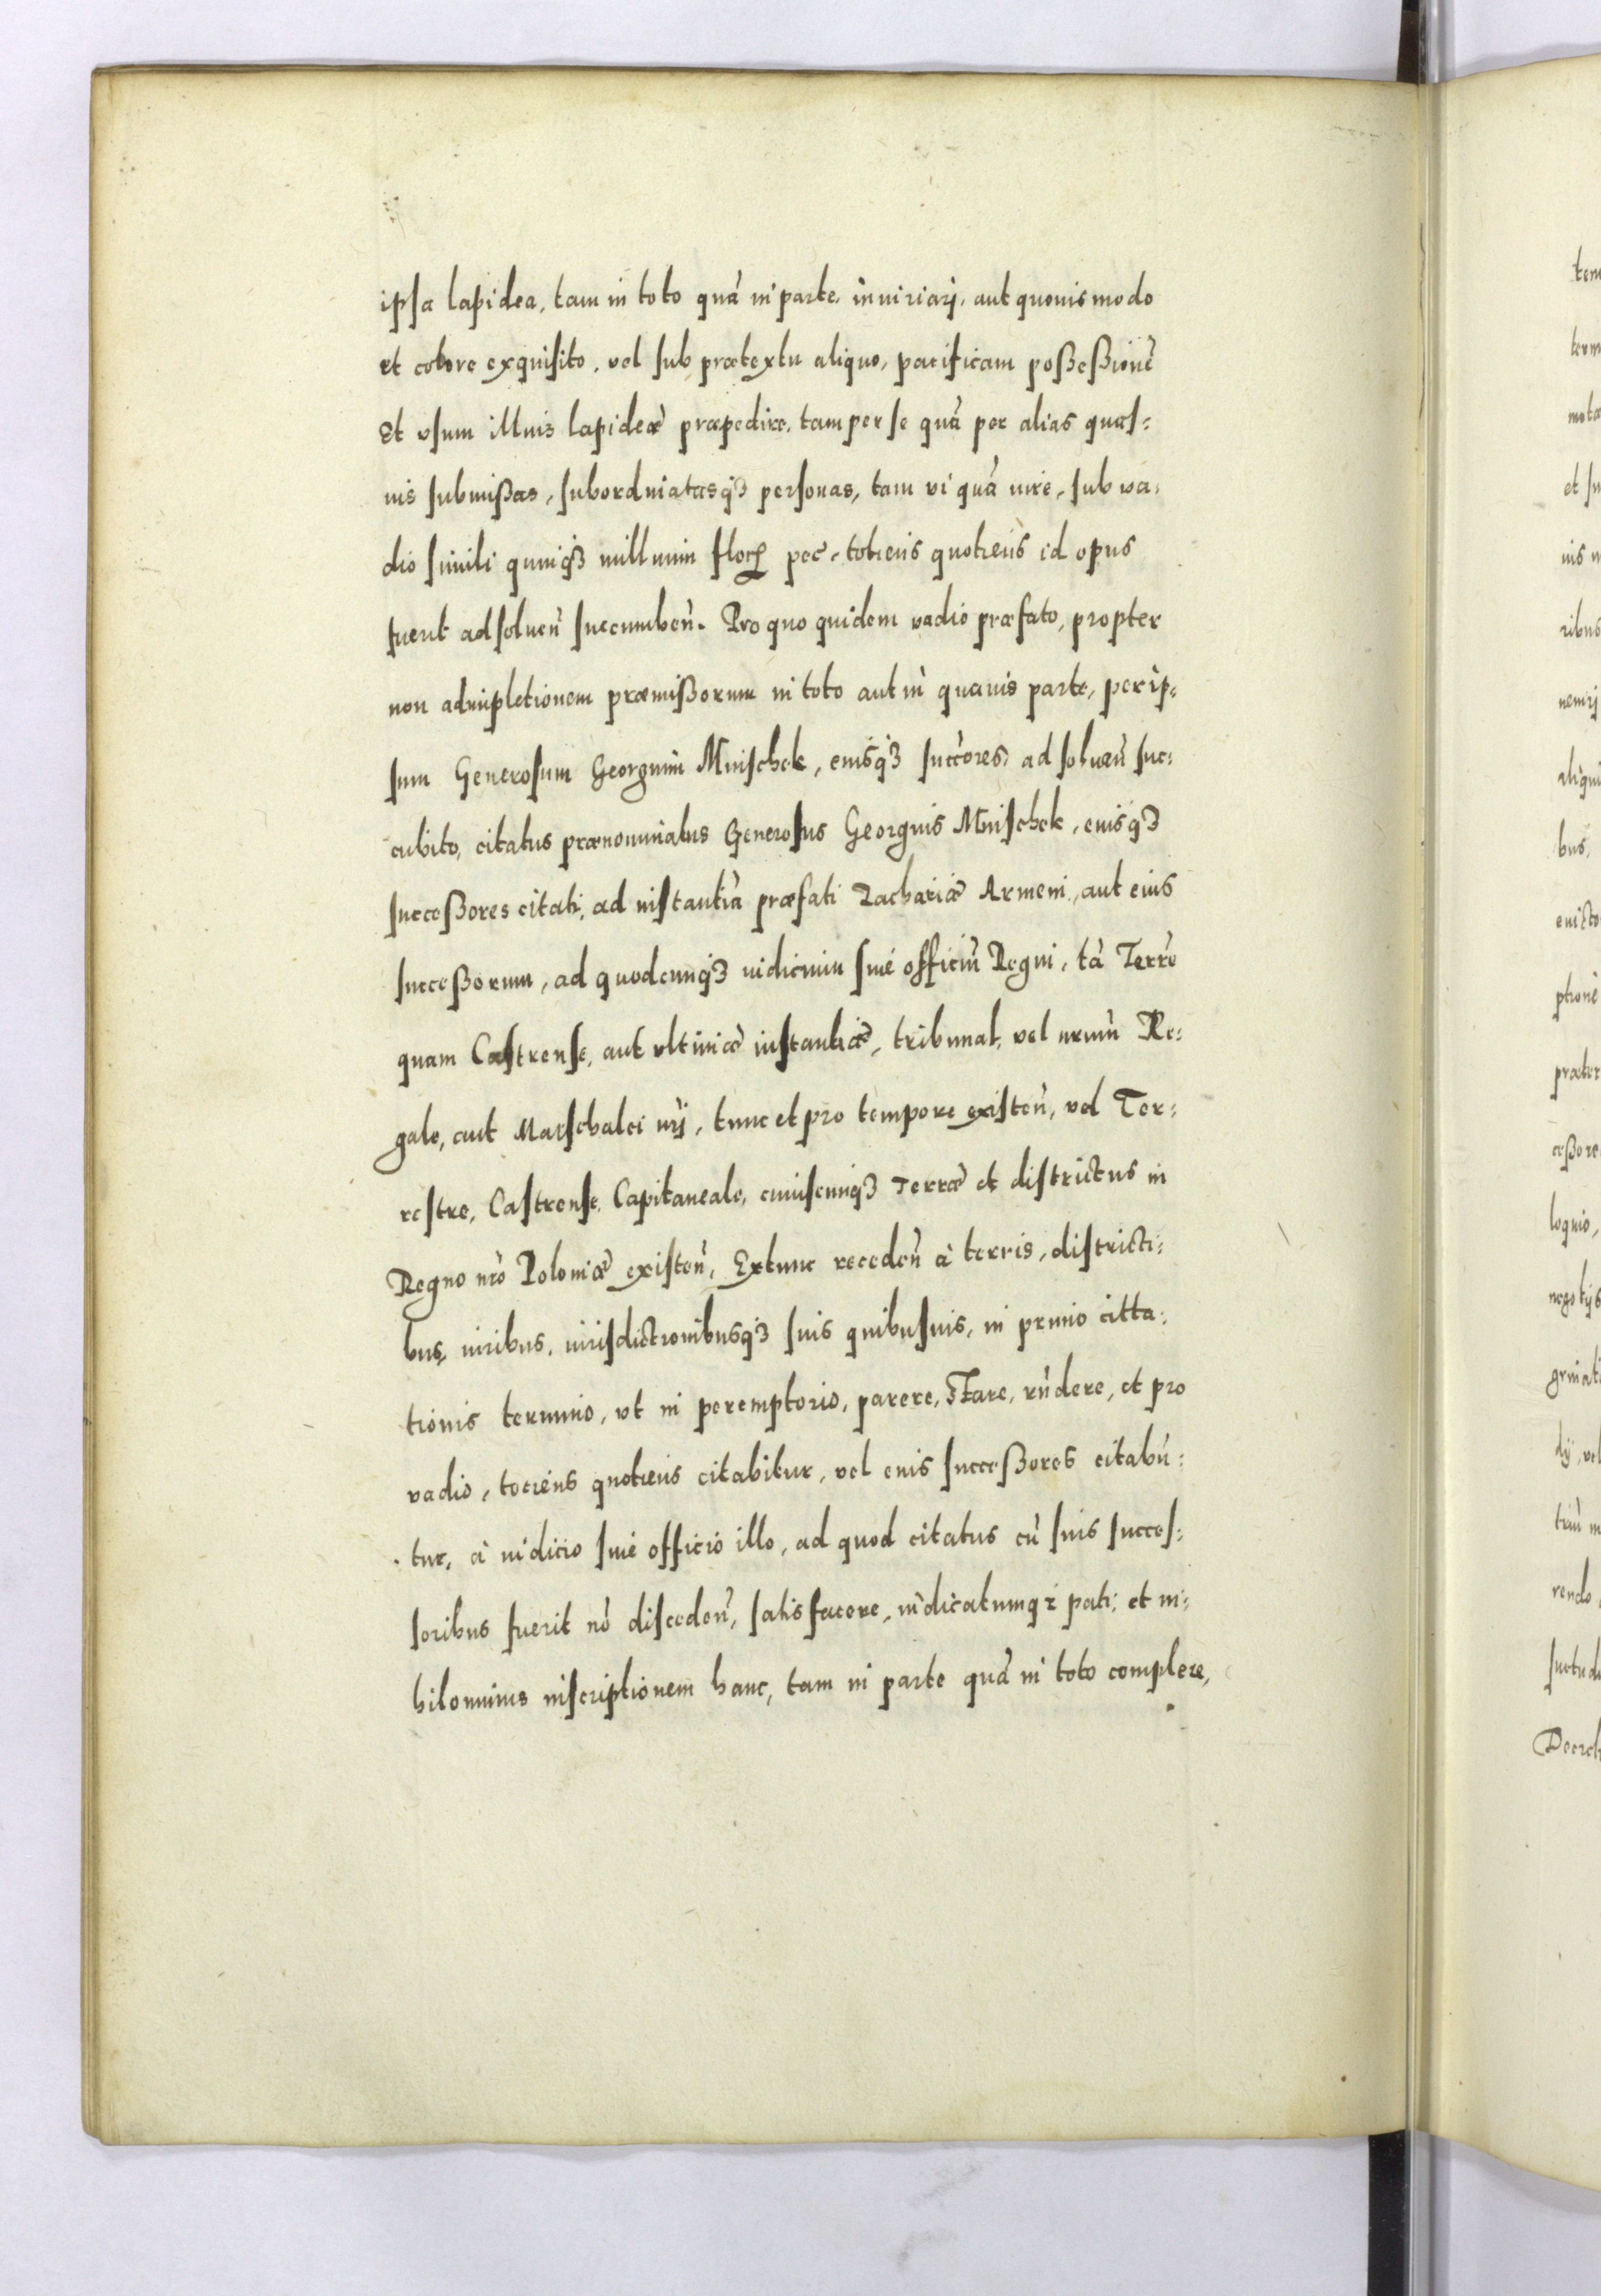 ipsa lapidea, tam in toto quā in parte, iniuriarj, aut quouis modo
et colore exquisito, vel sub prætextu aliquo, pacificam poßeßionē
Et vsum illius lapideæ præpedire, tam per se quā per alias quas=
uis submißas, subordinatasq3 personas, tam vi quā iure, sub va=
dio simili quinq3 millium flor pec, totiens quotiens id opus
fuerit ad soluen̄ succumben̄. Pro quo quidem vadio præfato, propter
non adimpletionem præmißorum in toto aut in quauis parte, per ip=
sum Generosum Georgium Mnischek, eiusq3 succores, ad soluen̄ suc=
cubito, citatus prænominatus Generosus Georgius Mnischek, eiusq3
succeßores citati, ad instantiā præfati Zachariæ Armeni, aut eius
succeßorum, ad quodcunq3 iudicium siue officiū Regni, tā Terrē
quam Castrense, aut vltimæ instantiæ, tribunal, vel nrum̄ Re=
gale, aut Marschalci nrj, tunc et pro tempore existen̄, vel Ter=
restre, Castrense, Capitaneale, cuiuscunq3 Terræ et districtus in
Regno nrō Poloniæ existen̄, Extunc receden̄ à terris, districti=
bus, iuribus, iurisdictionibusq3 suis quibusuis, in primo citta=
tionis termino, vt in peremptorio, parere, Stare, rn̄dere, et pro
vadio, tociens quotiens citabitur, vel eius succeßores citabū=
tur, à iudicio siue officio illo, ad quod citatus cū suis succes=
soribus fuerit nō disceden̄, satisfacere, iudicatumq3 pati; et ni=
hilominus inscriptionem hanc, tam in parte quā in toto complere,